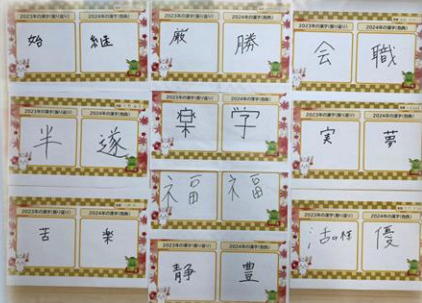 2023年の漢字(振り返り) 2024年の漢字(抱負)
始 継
2023年の漢字(振り返り) 2024年の漢字(抱負)
厳 勝
2023年の漢字(振り返り) 2024年の漢字(抱負)
会 職
2023年の漢字(振り返り) 2024年の漢字(抱負)
半 遂
2023年の漢字(振り返り) 2024年の漢字(抱負)
楽 学
2023年の漢字(振り返り) 2024年の漢字(抱負)
実 夢
2023年の漢字(振り返り) 2024年の漢字(抱負)
苦 楽
福 福
2023年の漢字(振り返り) 2024年の漢字(抱負)
静 豊
2023年の漢字(振り返り) 2024年の漢字(抱負)
優